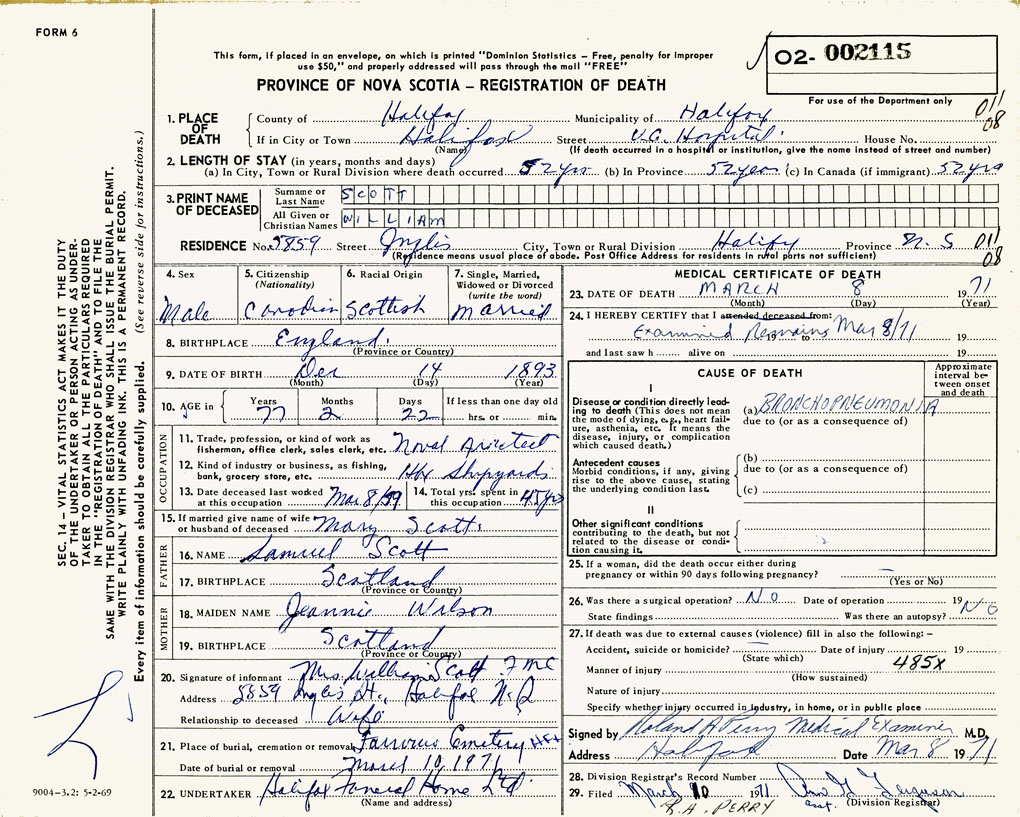 FORM 6
This form, if placed in an envelope, on which is printed "Dominion Statistics – Free, penalty for improper
use $50," and properly addressed will pass through the mail "FREE"
O2- 002115
PROVINCE OF NOVA SCOTIA – REGISTRATION OF DEATH
For use of the Department only
011
08
1. PLACE OF DEATH
County of Halifax Municipality of Halifax
If in City or Town Halifax Street V.G. Hospital House No.
(Name) (If death occurred in a hospital or institution, give the name instead of street and number)
2. LENGTH OF STAY (in years, months and days)
(a) In City, Town or Rural Division where death occurred 52 yrs (b) In Province 52 years (c) In Canada (if immigrant) 52 yrs
3. PRINT NAME OF DECEASED
Surname or Last Name SCOTT
All Given or Christian Names WILLIAM
RESIDENCE No. 5859 Street Inglis City, Town or Rural Division Halifax Province N.S 011
08
(Residence means usual place of abode. Post Office Address for residents in rural ports not sufficient)
4. Sex
Male
5. Citizenship
(Nationality)
Canadian
6. Racial Origin
Scottish
7. Single, Married,
Widowed or Divorced
(write the word)
Married
8. BIRTHPLACE England.
(Province or Country)
9. DATE OF BIRTH Dec 14 1893
(Month) (Day) (Year)
10. AGE in
Years Months Days If less than one day old
77 2 22 hrs. or min.
OCCUPATION
11. Trade, profession, or kind of work as
fisherman, office clerk, sales clerk, etc. Naval Architect
12. Kind of industry or business, as fishing,
bank, grocery store, etc. Hfx Shipyards
13. Date deceased last worked
at this occupation Mar 8/59
14. Total yrs. spent in
this occupation 45 yrs
15. If married give name of wife
or husband of deceased Mary Scott
FATHER
16. NAME Samuel Scott
17. BIRTHPLACE Scotland
(Province or Country)
MOTHER
18. MAIDEN NAME Jeannie Wilson
19. BIRTHPLACE Scotland
(Province or Country)
20. Signature of informant Mrs. William Scott
Address 5859 Inglis St., Halifax
Relationship to deceased Wife
21. Place of burial, cremation or removal Cemetery Hfx
Date of burial or removal March 10, 1971
22. UNDERTAKER Halifax Funeral Home Ltd
(Name and address)
MEDICAL CERTIFICATE OF DEATH
23. DATE OF DEATH MARCH 8 1971
(Month) (Day) (Year)
24. I HEREBY CERTIFY that I attended deceased from:
Examined Remains Mar 8/71
19 to 19
and last saw h alive on 19
CAUSE OF DEATH
Approximate
interval be-
tween onset
and death
I
Disease or condition directly lead-
ing to death (This does not mean
the mode of dying, e.g., heart fail-
ure, asthenia, etc. It means the
disease, injury, or complication
which caused death.)
(a) BRONCHOPNEUMONIA
due to (or as a consequence of)
Antecedent causes
Morbid conditions, if any, giving
rise to the above cause, stating
the underlying condition last.
(b)
due to (or as a consequence of)
(c)
II
Other significant conditions
contributing to the death, but not
related to the disease or condi-
tion causing it.
25. If a woman, did the death occur either during
pregnancy or within 90 days following pregnancy? –
(Yes or No)
26. Was there a surgical operation? NO Date of operation 19
State findings Was there an autopsy? NO
27. If death was due to external causes (violence) fill in also the following: –
Accident, suicide or homicide? Date of injury 19
(State which) 485X
Manner of injury
(How sustained)
Nature of injury
Specify whether injury occurred in industry, in home, or in public place
Signed by Roland A Perry Medical Examiner M.D.
Address Halifax Date Mar 8 1971
28. Division Registrar's Record Number
29. Filed March 10 1971 Ferguson
R.A. PERRY asst. (Division Registrar)
SEC. 14 – VITAL STATISTICS ACT MAKES IT THE DUTY
OF THE UNDERTAKER OR PERSON ACTING AS UNDER-
TAKER TO OBTAIN ALL THE PARTICULARS REQUIRED
IN THE "REGISTRATION OF DEATH" AND TO FILE THE
SAME WITH THE DIVISION REGISTRAR WHO SHALL ISSUE THE BURIAL PERMIT.
WRITE PLAINLY WITH UNFADING INK. THIS IS A PERMANENT RECORD.
Every item of information should be carefully supplied. (See reverse side for instructions.)
9004-3.2: 5-2-69